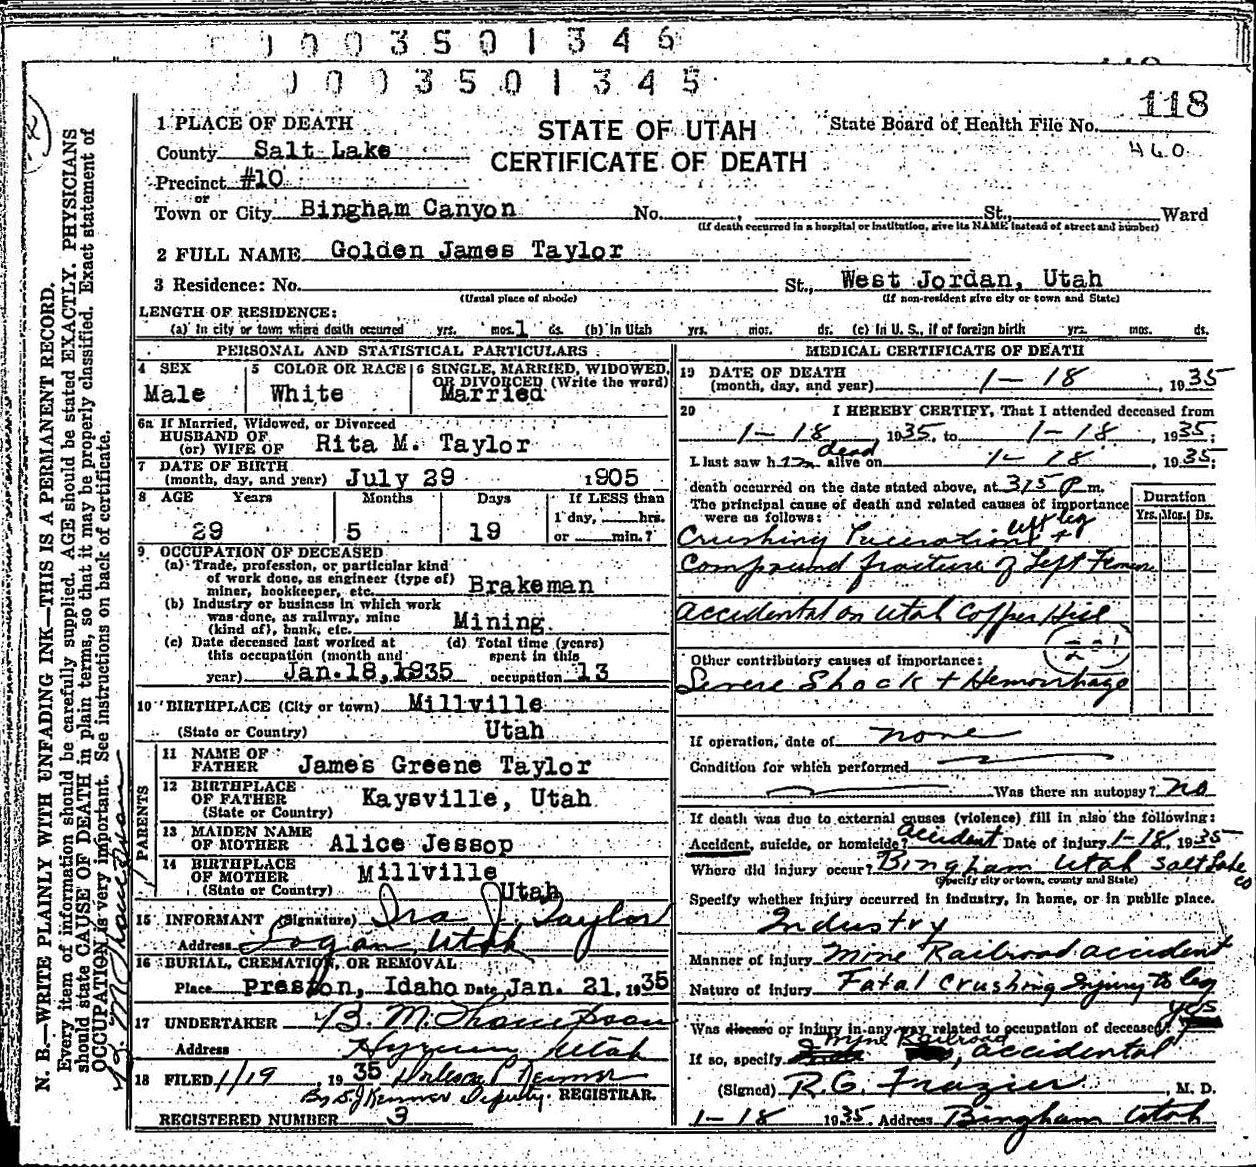 1003501346
1003501345
118
1 PLACE OF DEATH
STATE OF UTAH
State Board of Health File No.
County Salt Lake
CERTIFICATE OF DEATH
460
Precinct #10
or
Town or City Bingham Canyon No. , St., Ward
(If death occurred in a hospital or institution, give its NAME instead of street and number)
2 FULL NAME Golden James Taylor
3 Residence: No. St., West Jordan, Utah
(Usual place of abode) (If non-resident give city or town and State)
LENGTH OF RESIDENCE:
(a) In city or town where death occurred yrs. mos. 1 ds. (b) In Utah yrs. mos. ds. (c) In U. S., if of foreign birth yrs. mos. ds.
PERSONAL AND STATISTICAL PARTICULARS
4 SEX
Male
5 COLOR OR RACE
White
6 SINGLE, MARRIED, WIDOWED,
OR DIVORCED (Write the word)
Married
6a If Married, Widowed, or Divorced
HUSBAND OF
(or) WIFE OF Rita M. Taylor
7 DATE OF BIRTH
(month, day, and year) July 29 1905
8 AGE Years Months Days If LESS than
1 day, hrs.
29 5 19 or min.?
9 OCCUPATION OF DECEASED
(a) Trade, profession, or particular kind
of work done, as engineer (type of)
miner, bookkeeper, etc. Brakeman
(b) Industry or business in which work
was done, as railway, mine
(kind of), bank, etc. Mining
(c) Date deceased last worked at
this occupation (month and
year) Jan. 18, 1935
(d) Total time (years)
spent in this
occupation 13
10 BIRTHPLACE (City or town) Millville
(State or Country) Utah
PARENTS
11 NAME OF
FATHER James Greene Taylor
12 BIRTHPLACE
OF FATHER Kaysville, Utah
(State or Country)
13 MAIDEN NAME
OF MOTHER Alice Jessop
14 BIRTHPLACE
OF MOTHER Millville
(State or Country) Utah
15 INFORMANT (Signature) Ira J. Taylor
Address Logan, Utah
16 BURIAL, CREMATION, OR REMOVAL
Place Preston, Idaho Date Jan. 21, 1935
17 UNDERTAKER B. M. Thompson
Address Hyrum, Utah
18 FILED 1/19, 1935
By Deputy. REGISTRAR.
REGISTERED NUMBER 3
MEDICAL CERTIFICATE OF DEATH
19 DATE OF DEATH
(month, day, and year) 1-18, 1935
20 I HEREBY CERTIFY, That I attended deceased from
1-18, 1935, to 1-18, 1935;
dead
I last saw him alive on 1-18, 1935;
death occurred on the date stated above, at 315 P m.
The principal cause of death and related causes of importance
were as follows:
Duration
Yrs. Mos. Ds.
left leg
Crushing Laceration +
Compound fracture of Left Femur
accidental on Utah Copper Hill
Other contributory causes of importance:
Severe Shock + Hemorrhage
If operation, date of none
Condition for which performed
Was there an autopsy? no
If death was due to external causes (violence) fill in also the following:
Accident, suicide, or homicide? accident Date of injury 1-18, 1935
Where did injury occur? Bingham Utah Salt Lake Co
(Specify city or town, county and State)
Specify whether injury occurred in industry, in home, or in public place.
Industry
Manner of injury Mine Railroad accident
Nature of injury Fatal Crushing Injury to leg
yes
Was disease or injury in any way related to occupation of deceased?
mine Railroad
If so, specify , accidental
(Signed) R. G. Frazier M. D.
1-18 1935. Address Bingham Utah
N. B.—WRITE PLAINLY WITH UNFADING INK—THIS IS A PERMANENT RECORD.
Every item of information should be carefully supplied. AGE should be stated EXACTLY. PHYSICIANS
should state CAUSE OF DEATH in plain terms, so that it may be properly classified. Exact statement of
OCCUPATION is very important. See instructions on back of certificate.